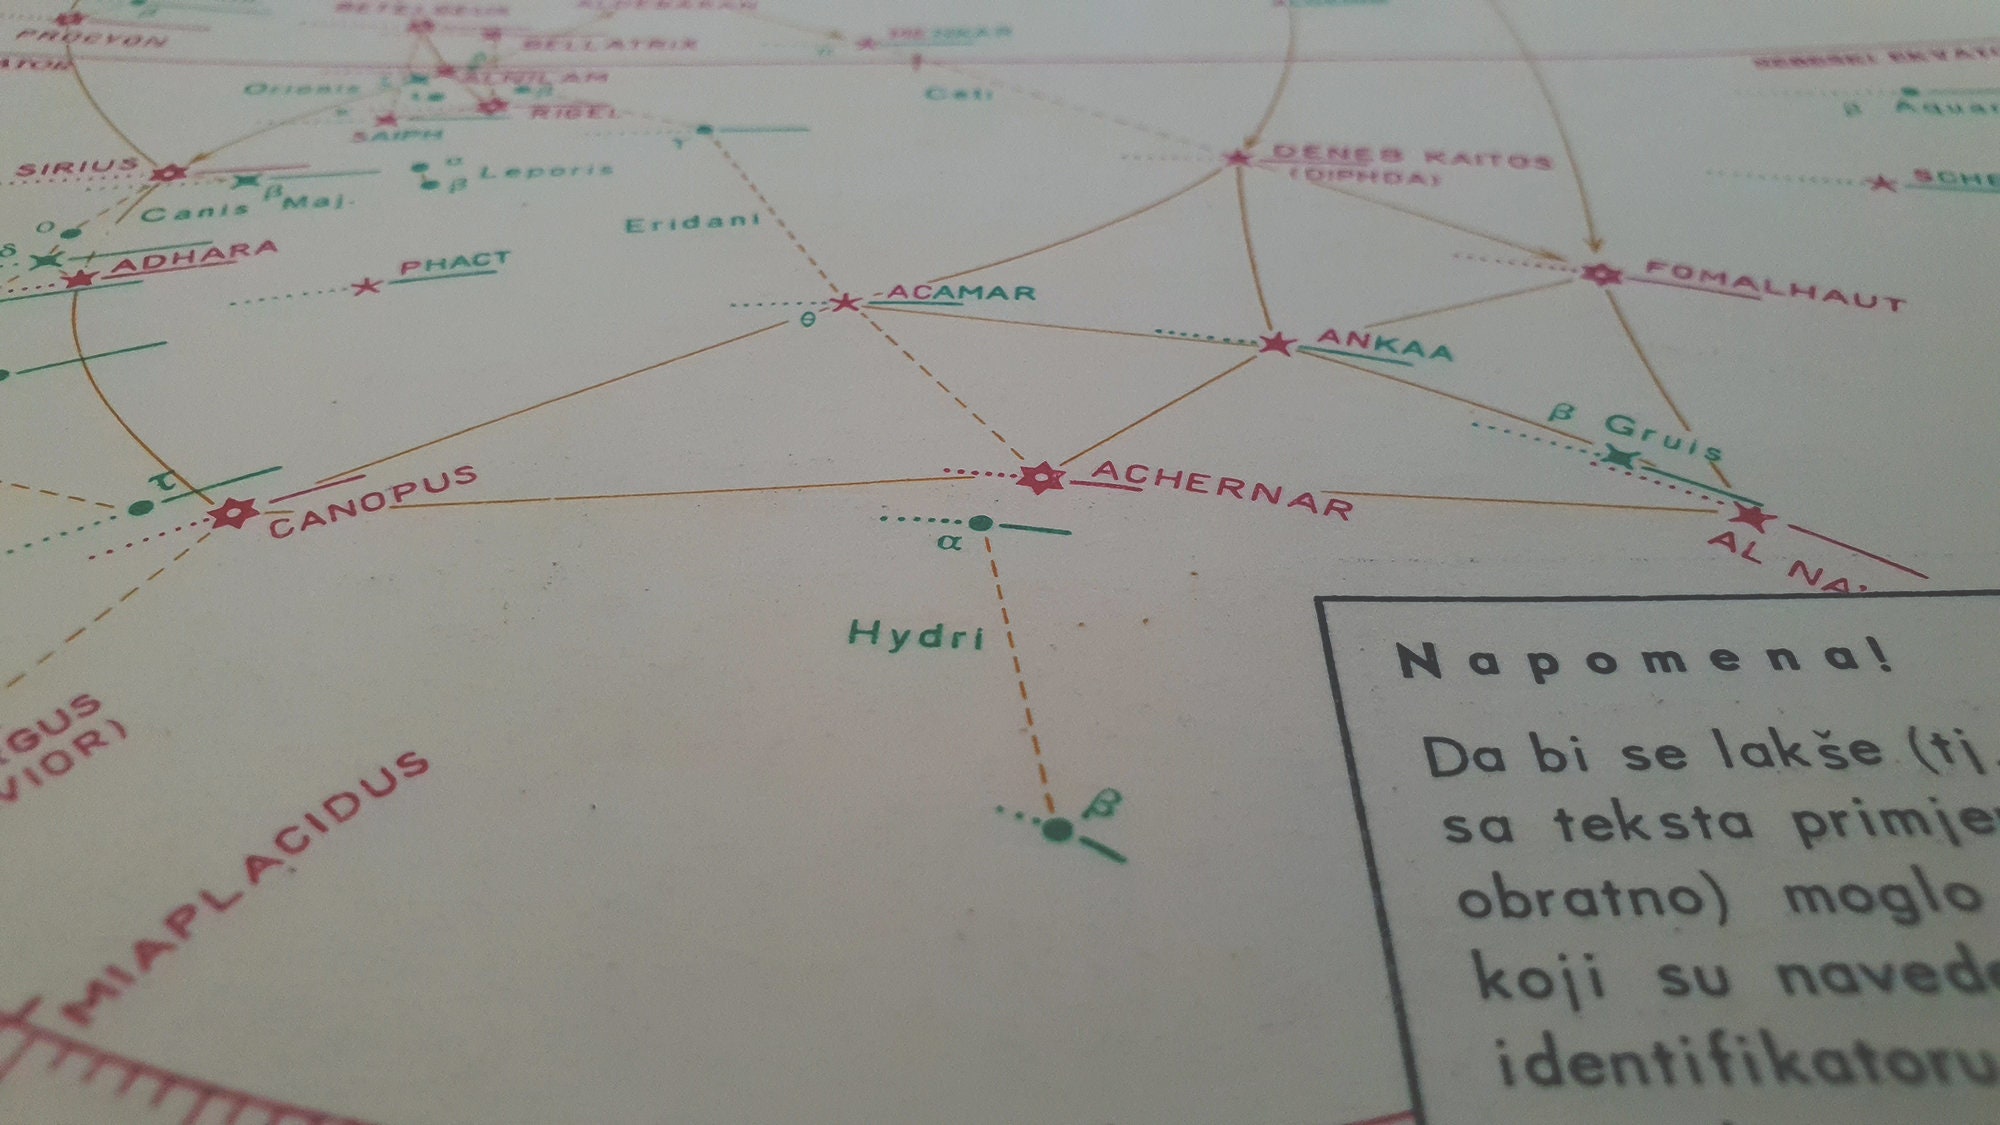 PROCYON
BELLATRIX
ALNILAM
Orionis
RIGEL
SAIPH
Ceti
β Aquar
SIRIUS
β
Canis Maj.
α
β Leporis
γ
DENEB KAITOS
(DIPHDA)
SCHE
Eridani
ο
δ
ADHARA
PHACT
ACAMAR
θ
FOMALHAUT
ANKAA
β Gruis
τ
CANOPUS
ACHERNAR
α
AL NA
Hydri
β
MIAPLACIDUS
GUS
VIOR)
Napomena!
Da bi se lakše (tj.
sa teksta primje
obratno) moglo
koji su navede
identifikatoru